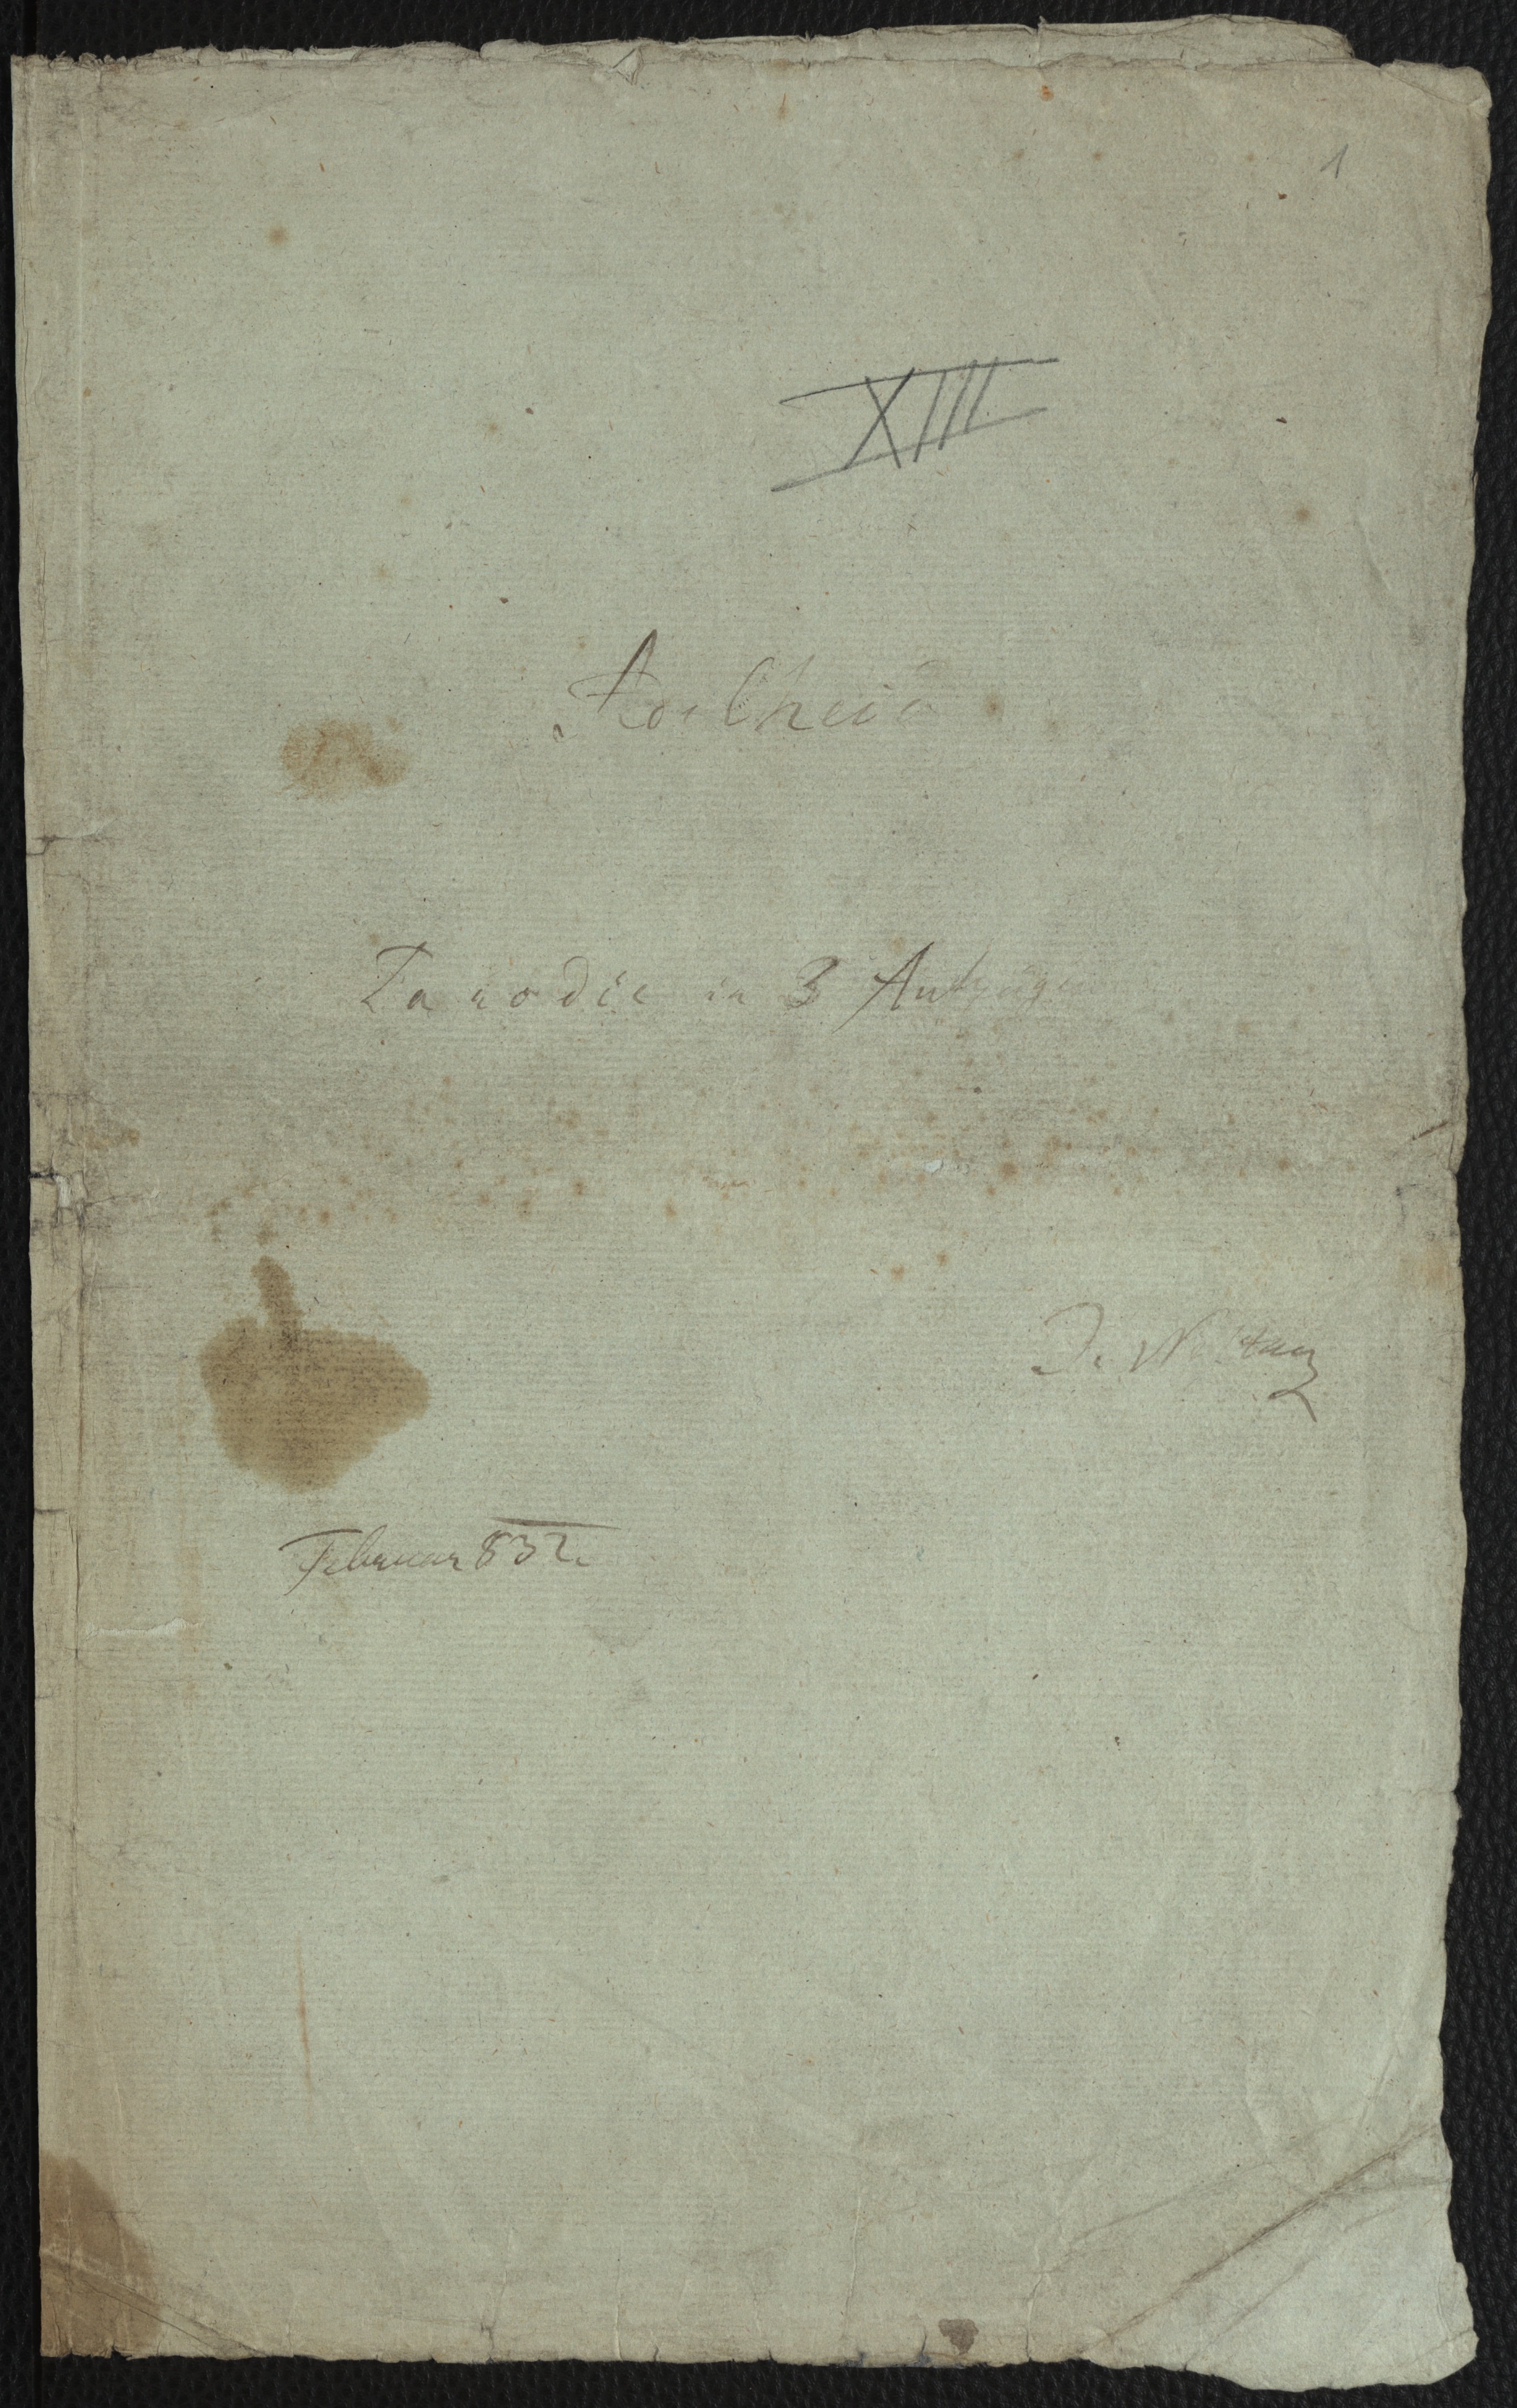 1
XIII
Adelheid
Parodie in 3 Aufzügen
Februar 832